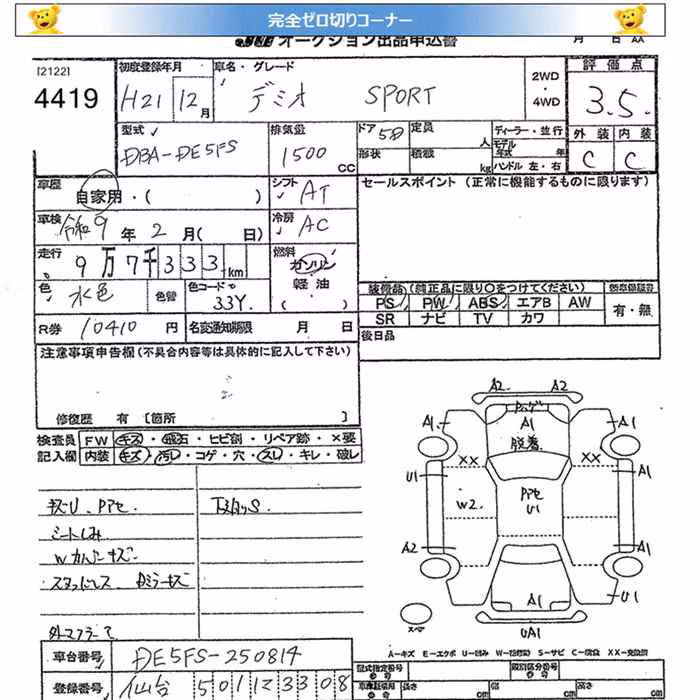 完全ゼロ切りコーナー
オークション出品申込書 月 日 AA
[2122]
4419
初度登録年月 車名・グレード 2WD・4WD 評価点
H21 12月 デミオ SPORT 3.5
型式 排気量 ドア 定員 ディーラー・並行 外装 内装
DBA-DE5FS 1500 CC 5D 人 モデル年式 年 C C
形状 積載 kg ハンドル 左・右
車歴 自家用・( ) シフト AT セールスポイント (正常に機能するものに限ります)
車検 令和9年 2月( 日) 冷房 AC
走行 9万7千333km 燃料 ガソリン・軽油・( )
色 水色 色替 色コード 33Y
装備品 (純正品に限り○をつけてください)
PS PW ABS エアB AW 有・無
SR ナビ TV カワ
R券 10410円 名変通知期限 月 日 後日品
注意事項申告欄 (不具合内容等は具体的に記入して下さい)
修復歴 有 [箇所 ]
検査員 FW キズ・飛石・ヒビ割・リペア跡・×要
記入欄 内装 キズ・汚レ・コゲ・穴・スレ・キレ・破レ
キズU、Pアセ
シートしみ
Wカバーキズ
スタッドレス Dミラーキズ
外マフラー
A2 A2
A1 A1 A1
脱着
XX XX
U1 A1
W2 Pアセ U1
A2 A1
A1 U1
スペア UA1
A-キズ E-エクボ U-凹み W-補修跡 S-サビ C-腐食 XX-交換済
車台番号 DE5FS-250814
型式指定番号 類別区分番号
登録番号 仙台 501 に 3308
長さ cm 幅 cm 高さ cm